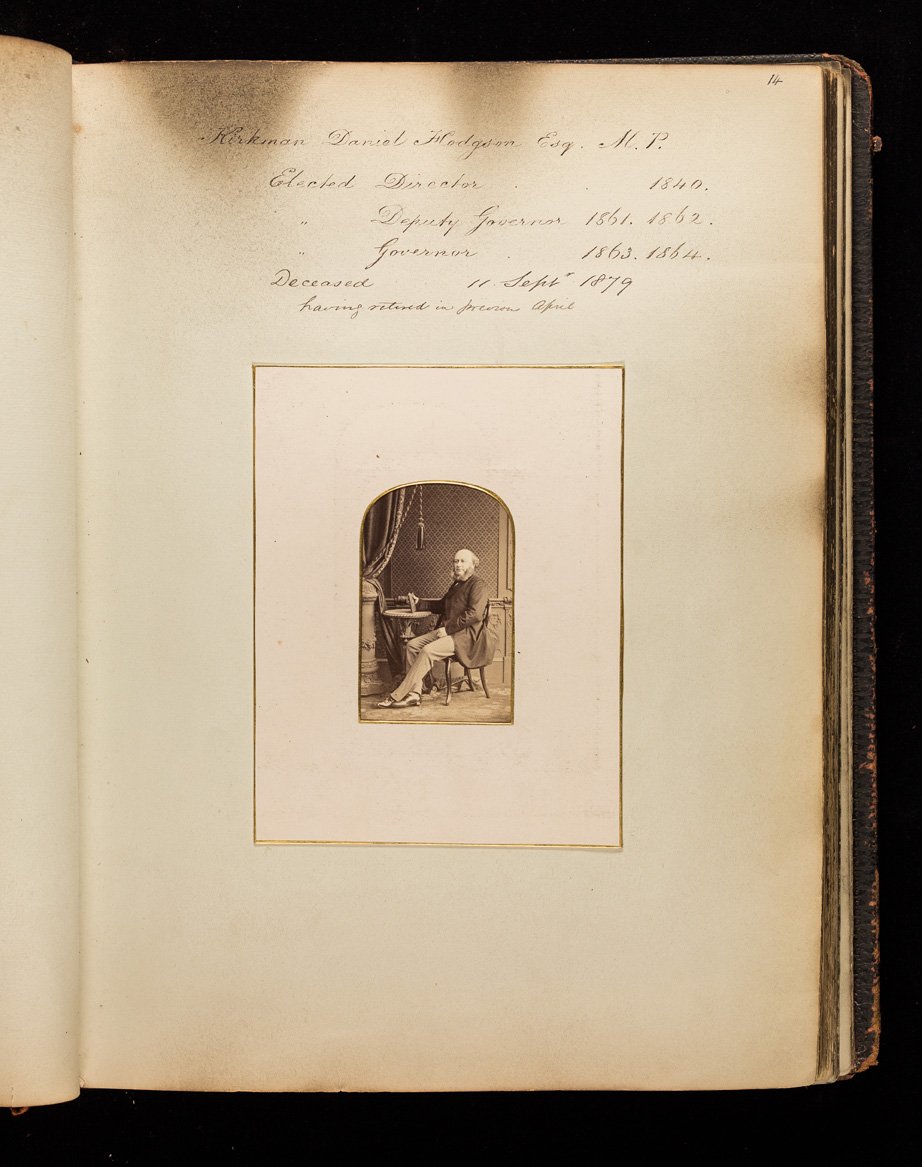 14
Kirkman Daniel Hodgson Esq. M.P.
Elected Director . . 1840.
" Deputy Governor 1861. 1862.
" Governor . 1863. 1864.
Deceased 11 Septr 1879
having retired in previous April